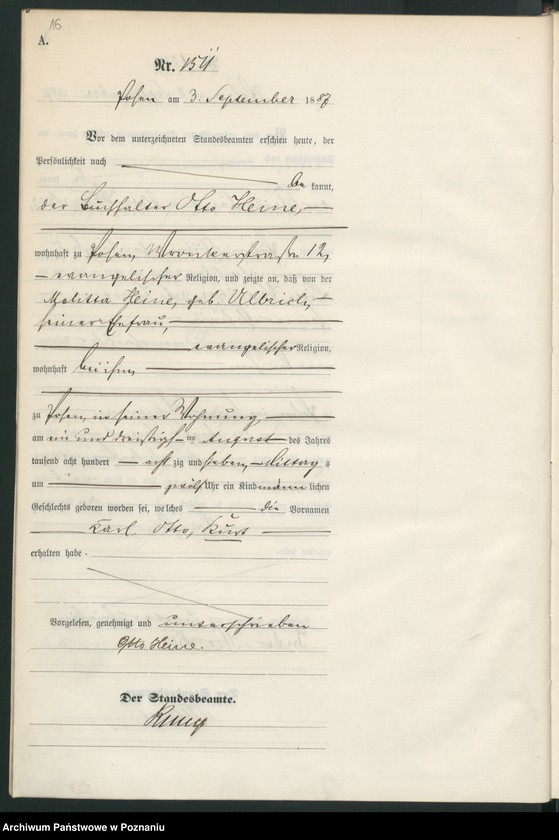 16
A.
Nr. 1511
Posen am 3. September 1887
Vor dem unterzeichneten Standesbeamten erschien heute, der
Persönlichkeit nach
be kannt,
der Buchhalter Otto Heine,
wohnhaft zu Posen, Wronkerstraße 12,
evangelischer Religion, und zeigte an, daß von der
Melitta Heine, geb. Ulbrich,
seiner Ehefrau,
evangelischer Religion,
wohnhaft bei ihm
zu Posen, in seiner Wohnung,
am ein und dreißigsten ten August des Jahres
tausend acht hundert acht zig und sieben, Mittag s
um zwölf Uhr ein Kind männ lichen
Geschlechts geboren worden sei, welches die Vornamen
Karl Otto, Kurt
erhalten habe.
Vorgelesen, genehmigt und unterschrieben
Otto Heine.
Der Standesbeamte.
Archiwum Państwowe w Poznaniu